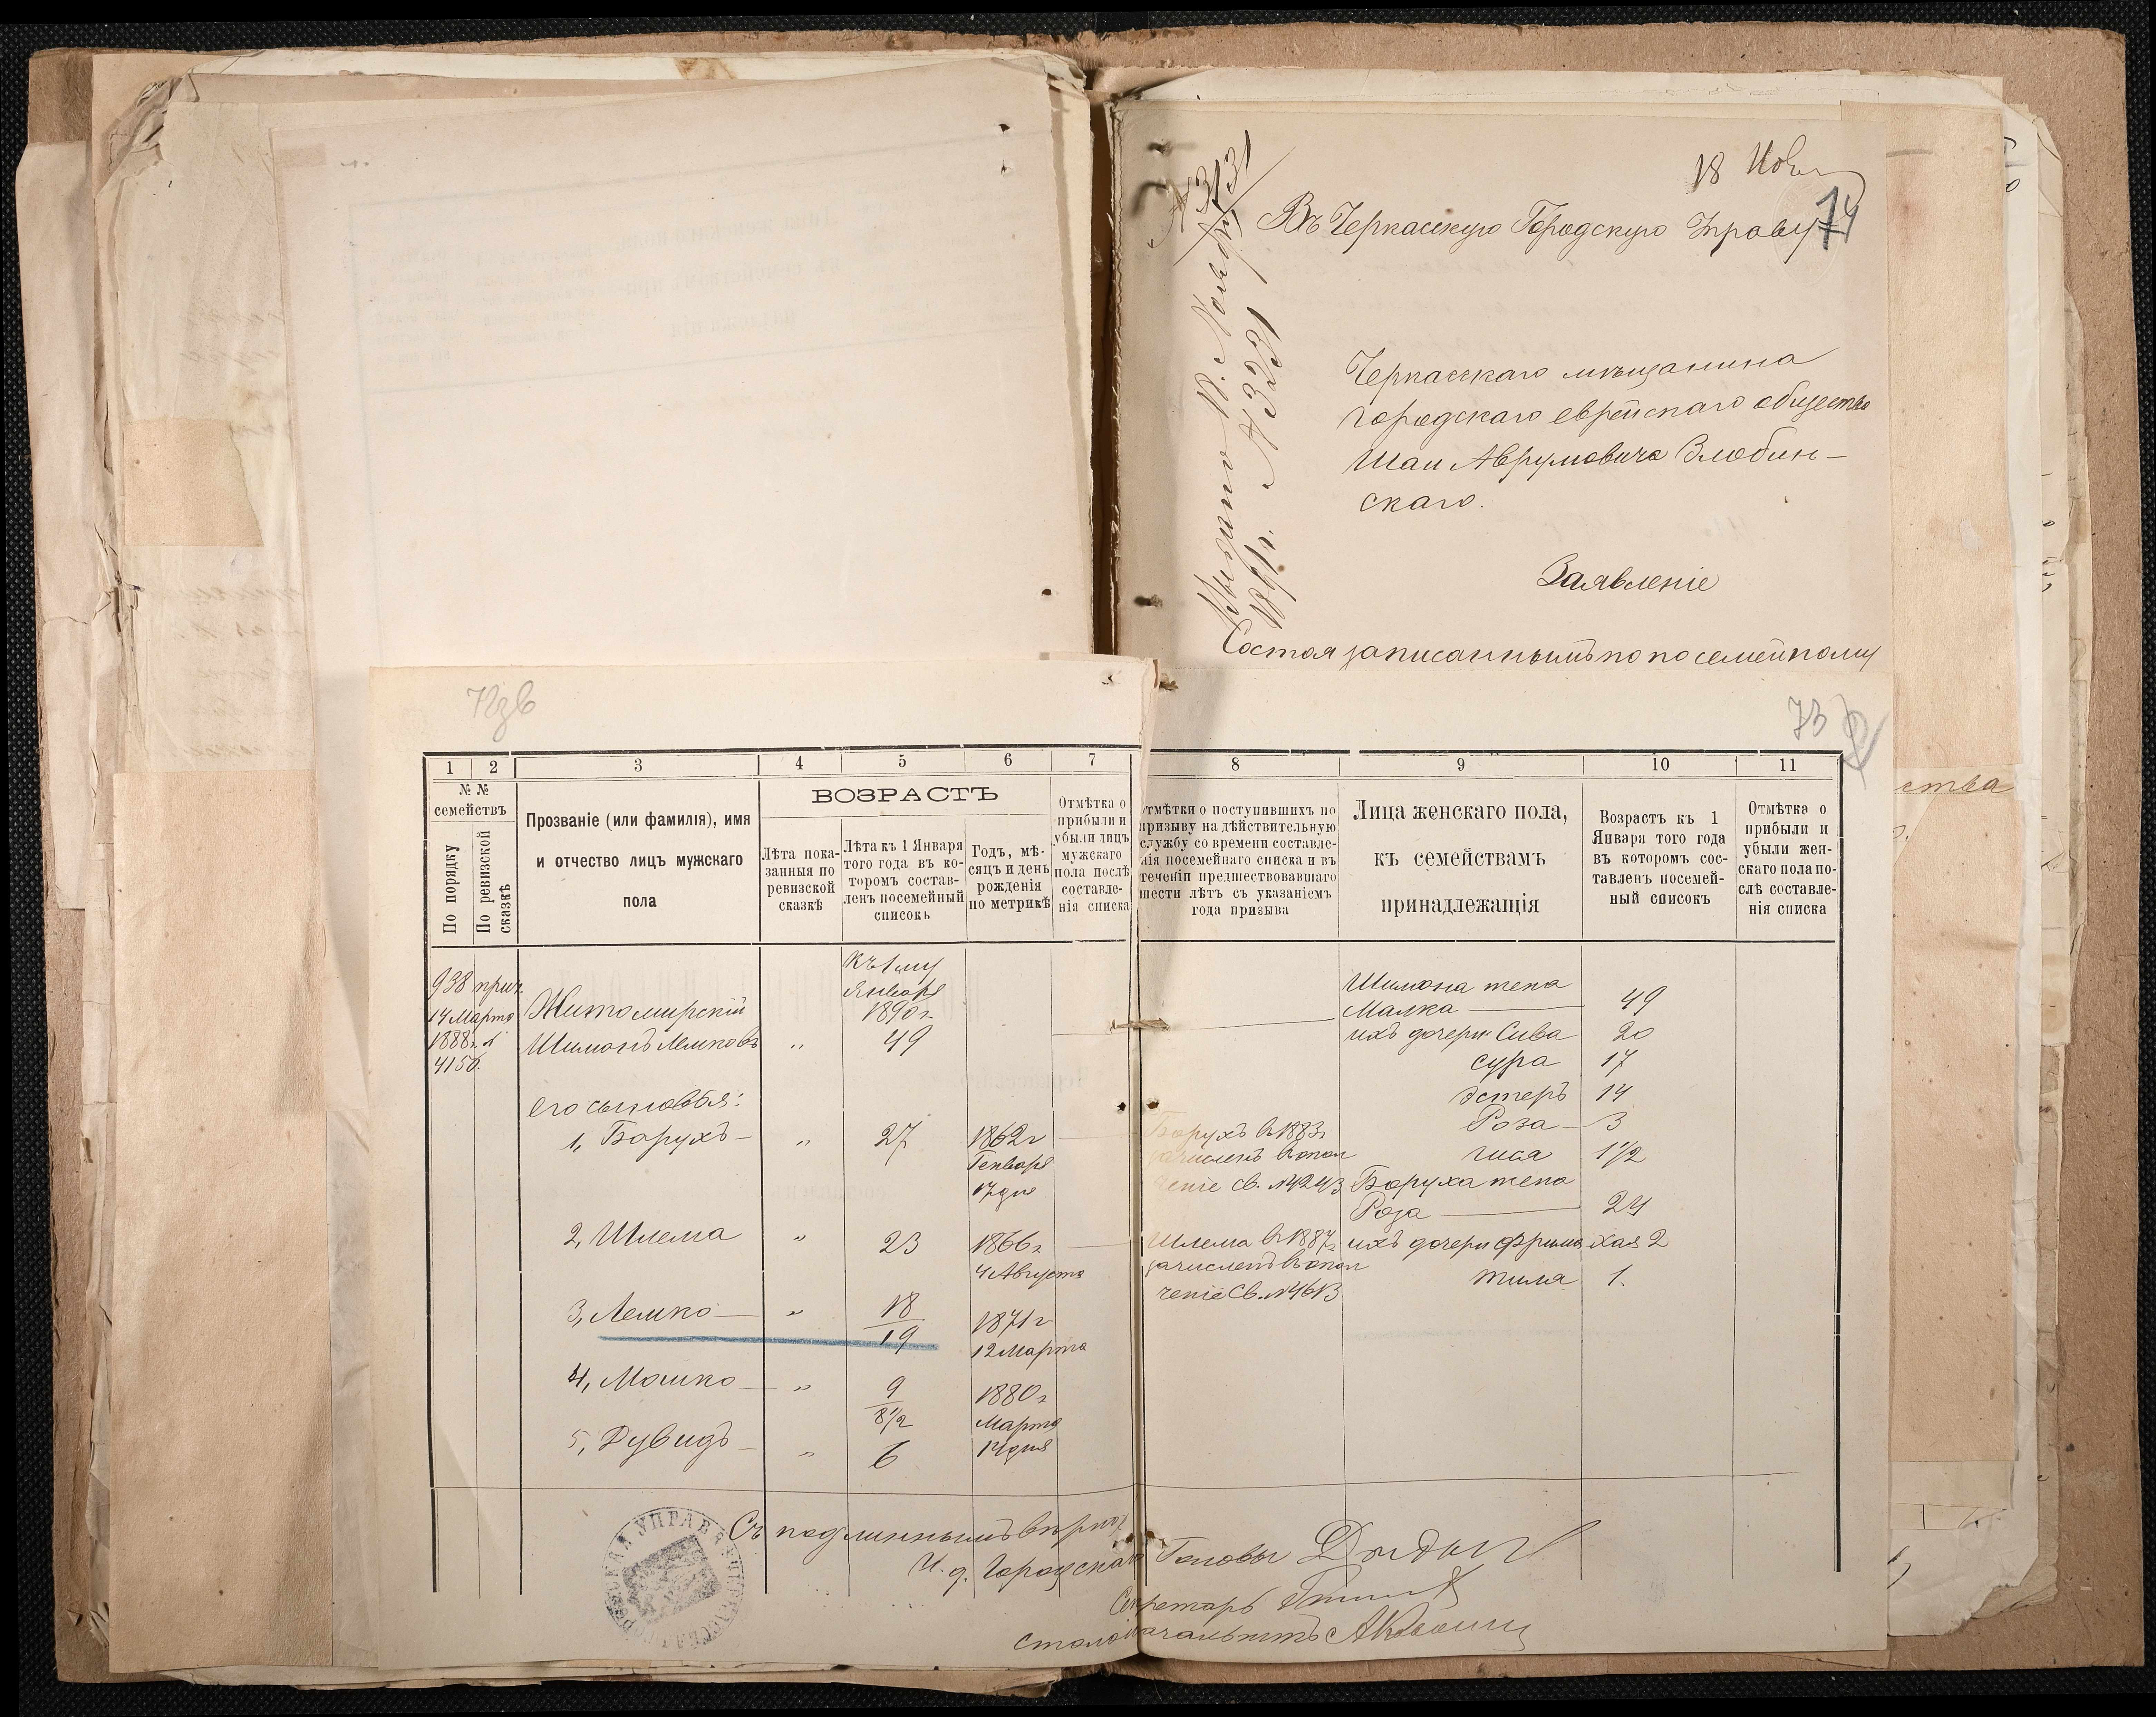 18 Нов
14
Въ Черкасскую Городскую Управу
№ 3131
Выдано 18. Ноября
1891 г. № 3231
Черкасскаго мѣщанина
Городскаго еврейскаго общества
Шаи Аврумовича Злобин-
скаго.
Заявленіе
Состоя записаннымъ по посемейному
ства
73
1 2 3 4 5 6 7 8 9 10 11
№ №
семействъ
По порядку
По ревизской сказкѣ
Прозваніе (или фамилія), имя
и отчество лицъ мужскаго
пола
ВОЗРАСТЪ
Лѣта пока-
занныя по
ревизской
сказкѣ
Лѣта къ 1 Января
того года въ ко-
торомъ состав-
ленъ посемейный
списокъ
Годъ, мѣ-
сяцъ и день
рожденія
по метрикѣ
Отмѣтка о
прибыли и
убыли лицъ
мужскаго
пола послѣ
составле-
нія списка
отмѣтки о поступившихъ по
призыву на дѣйствительную
службу со времени составле-
нія посемейнаго списка и въ
теченіи предшествовавшаго
шести лѣтъ съ указаніемъ
года призыва
Лица женскаго пола,
къ семействамъ
принадлежащія
Возрастъ къ 1
Января того года
въ которомъ сос-
тавленъ посемей-
ный списокъ
Отмѣтка о
прибыли и
убыли жен-
скаго пола по-
слѣ составле-
нія списка
938 прич.
14 Марта
1888 г. №
4156.
Житомирскій
Шимонъ Лемковъ
„
Къ 1му
Января
1890 г.
49
его сыновья:
1, Борухъ „ 27 1862 г
Генваря
17 дня
2, Шлема „ 23 1866 г
4 Августа
3, Лемко „ 18
19
1871 г
12 Марта
4, Мошко „ 9
8 1/2
1880 г
Марта
14 дня
5, Дувидъ „ 6
Борухъ в 1883 г
зачисленъ в опол
ченіе св. № 4243
Шлема в 1887 г
зачисленъ в опол
ченіе Св. № 4613
Шимона жена
Малка 49
ихъ дочери Сива 20
Сура 17
Эстеръ 14
Роза 3
Гися 1 1/2
Боруха жена
Роза 24
ихъ дочери Фрима Хая 2
Тиля 1.
Съ подлиннымъ вѣрно:
И. д. Городскаго Головы
Секретарь
Столоначальникъ